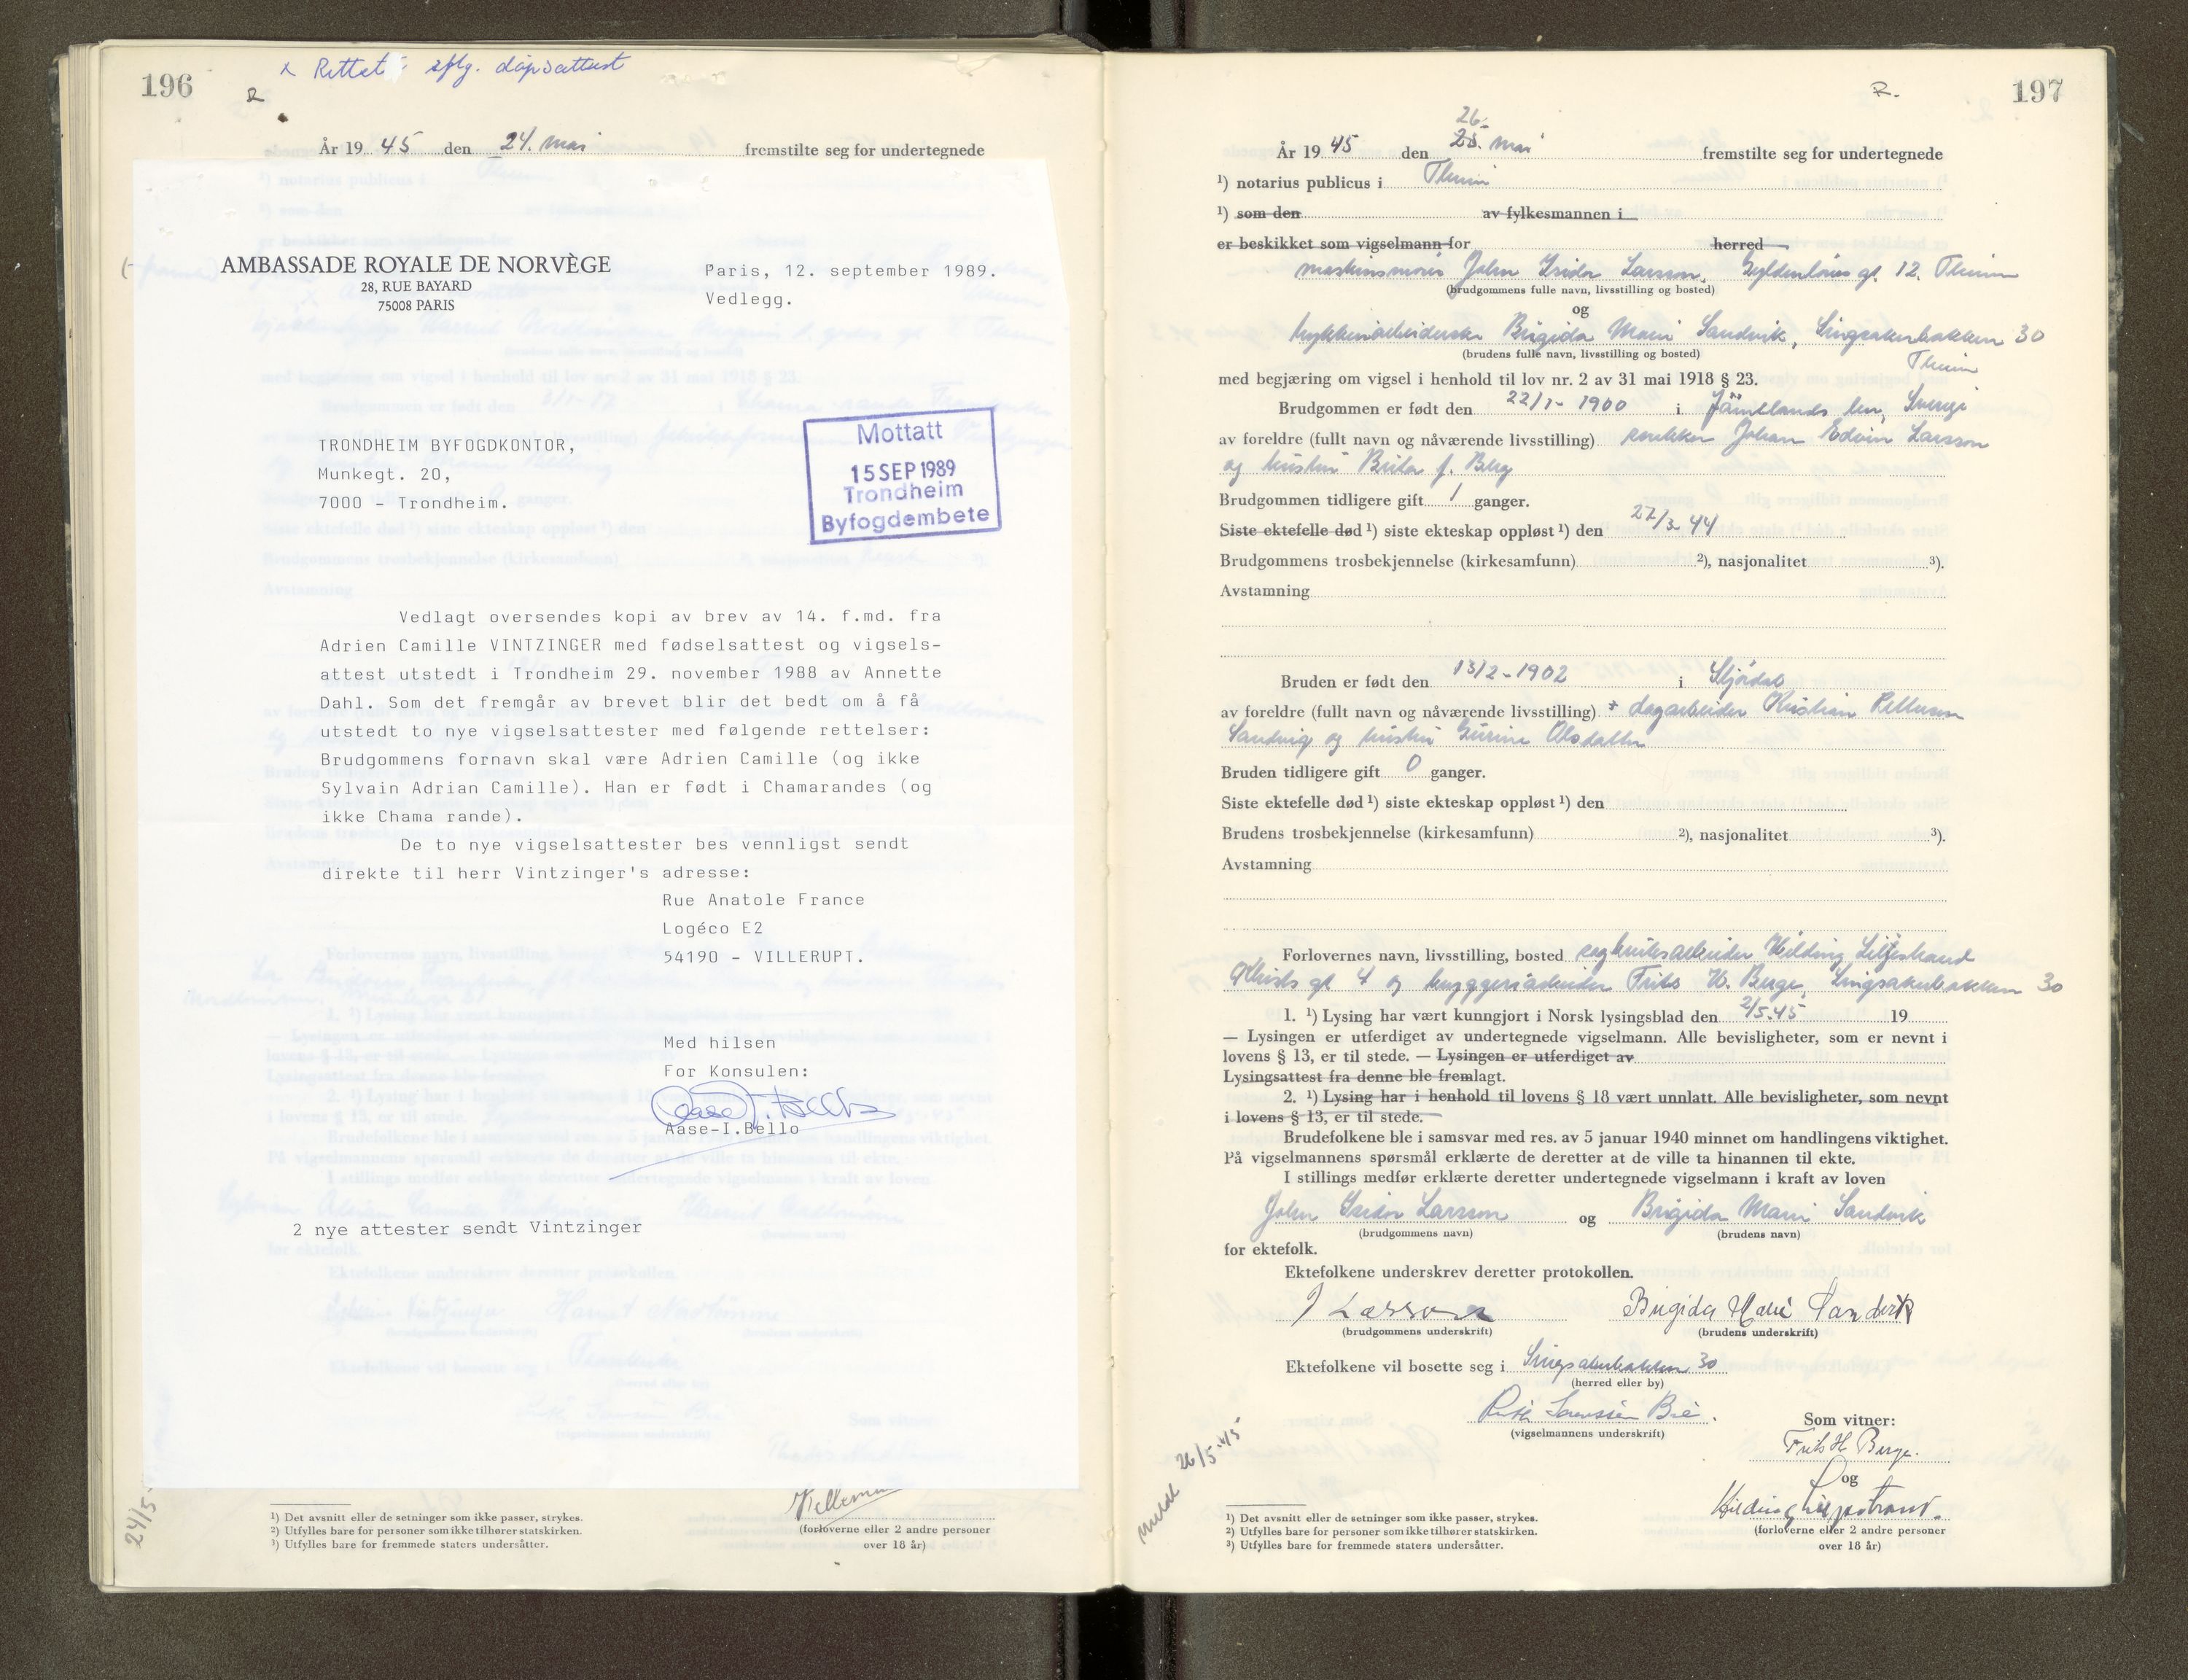 196
x Rettet iflg. dåpsattest
År 19 45 den 24. mai fremstilte seg for undertegnede
AMBASSADE ROYALE DE NORVÈGE
28, RUE BAYARD
75008 PARIS
Paris, 12. september 1989.
Vedlegg.
TRONDHEIM BYFOGDKONTOR,
Munkegt. 20,
7000 - Trondheim.
Mottatt
15 SEP 1989
Trondheim
Byfogdembete
Vedlagt oversendes kopi av brev av 14. f.md. fra
Adrien Camille VINTZINGER med fødselsattest og vigsels-
attest utstedt i Trondheim 29. november 1988 av Annette
Dahl. Som det fremgår av brevet blir det bedt om å få
utstedt to nye vigselsattester med følgende rettelser:
Brudgommens fornavn skal være Adrien Camille (og ikke
Sylvain Adrian Camille). Han er født i Chamarandes (og
ikke Chama rande).
De to nye vigselsattester bes vennligst sendt
direkte til herr Vintzinger's adresse:
Rue Anatole France
Logéco E2
54190 - VILLERUPT.
Med hilsen
For Konsulen:
Aase-I.Bello
2 nye attester sendt Vintzinger
24/5-
¹) Det avsnitt eller de setninger som ikke passer, strykes.
²) Utfylles bare for personer som ikke tilhører statskirken.
³) Utfylles bare for fremmede staters undersåtter.
(forloverne eller 2 andre personer
over 18 år)
R. 197
26.
År 19 45 den 25. mai fremstilte seg for undertegnede
¹) notarius publicus i Theim
¹) som den av fylkesmannen i
er beskikket som vigselmann for herred
John Isidor Larsson, Gyldenløves gt. 12. Theim
(brudgommens fulle navn, livsstilling og bosted)
og
Brigida Marie Sandvik, Singsakerbakken 30
(brudens fulle navn, livsstilling og bosted) Theim
med begjæring om vigsel i henhold til lov nr. 2 av 31 mai 1918 § 23.
Brudgommen er født den 22/1- 1900 i Jämtlands len, Sverige
av foreldre (fullt navn og nåværende livsstilling) Johan Edvin Larsson
og hustru Brita f. Berg
Brudgommen tidligere gift 1 ganger.
Siste ektefelle død ¹) siste ekteskap oppløst ¹) den 27/3-44
Brudgommens trosbekjennelse (kirkesamfunn) ²), nasjonalitet ³).
Avstamning
Bruden er født den 13/2-1902 i Stjørdal
av foreldre (fullt navn og nåværende livsstilling) + dagarbeider Kristian Pettersen
Sandvig og hustru Gurine Olsdatter
Bruden tidligere gift 0 ganger.
Siste ektefelle død ¹) siste ekteskap oppløst ¹) den
Brudens trosbekjennelse (kirkesamfunn) ²), nasjonalitet ³).
Avstamning
Forlovernes navn, livsstilling, bosted sagbruksarbeider Hilding Liljestrand
gt 4 og bryggeriarbeider Frits H. Berge, Singsakerbakken 30
1. ¹) Lysing har vært kunngjort i Norsk lysingsblad den 2/5.45 19
— Lysingen er utferdiget av undertegnede vigselmann. Alle bevisligheter, som er nevnt i
lovens § 13, er til stede. — Lysingen er utferdiget av
Lysingsattest fra denne ble fremlagt.
2. ¹) Lysing har i henhold til lovens § 18 vært unnlatt. Alle bevisligheter, som nevnt
i lovens § 13, er til stede.
Brudefolkene ble i samsvar med res. av 5 januar 1940 minnet om handlingens viktighet.
På vigselmannens spørsmål erklærte de deretter at de ville ta hinannen til ekte.
I stillings medfør erklærte deretter undertegnede vigselmann i kraft av loven
John Isidor Larsson og Brigida Marie Sandvik
(brudgommens navn) (brudens navn)
for ektefolk.
Ektefolkene underskrev deretter protokollen.
J Larsson Brigida Marie Sandvik
(brudgommens underskrift) (brudens underskrift)
Ektefolkene vil bosette seg i Singsakerbakken 30
(herred eller by)
(vigselmannens underskrift)
Som vitner:
Frits H Berge.
og
Hilding Liljestrand.
(forloverne eller 2 andre personer
over 18 år)
meldt 26/5-45
¹) Det avsnitt eller de setninger som ikke passer, strykes.
²) Utfylles bare for personer som ikke tilhører statskirken.
³) Utfylles bare for fremmede staters undersåtter.